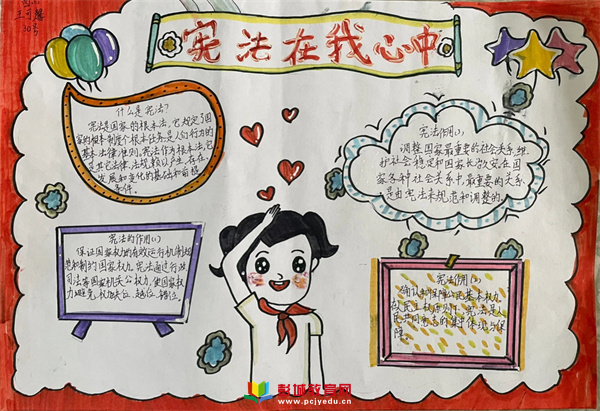 30号
宪法在我心中
什么是宪法?
宪法是国家的根本法,它规定了国
家的根本制度个根本任务是人们行为的
基本法律准则。宪法作为根本法,它
是其它法律、法规赖以产生、存在、
发展和变化的基础和前提
条件。
宪法作用(1)
调整国家最重要的社会关系,维
护社会稳定和国家长治久安,在国
家各种社会关系中,最重要的关系
是由宪法来规范和调整的。
宪法的作用(2)
保证国家权力的有效运行机制规
范和制约国家权力。宪法通过行政
司法等国家机关公权力,使国家权
力避免权力缺位、越位、错位。
宪法作用(3)
确认和保障公民基本权力,
彭城教育网
www.pcjyedu.cn